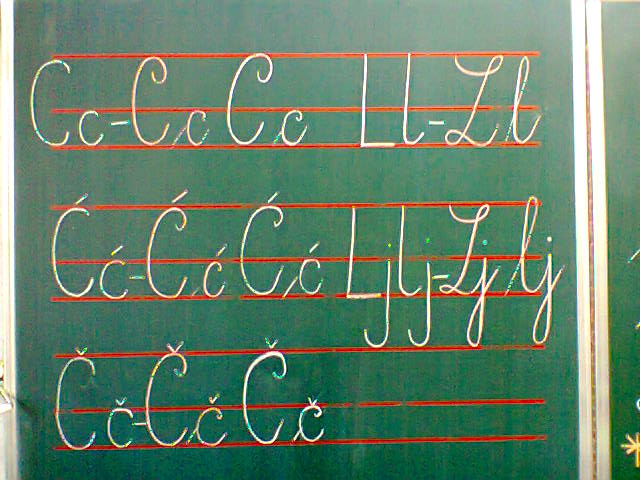 Cc-Cc Cc Ll-Ll
Ćć-Ćć Ćć Ljlj-Ljlj
Čč-Čč Čč